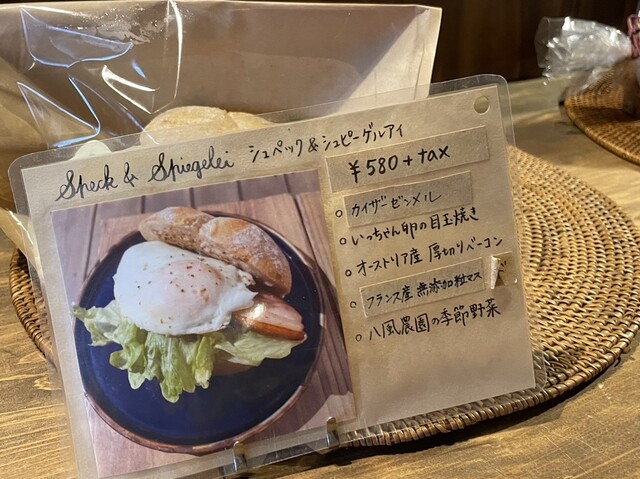 Speck & Spiegelei シュペック&シュピーゲルアイ
¥580+tax
○ カイザーゼンメル
○ いっちゃん卵の目玉焼き
○ オーストリア産 厚切りベーコン
○ フランス産 無添加粒マス
○ 八風農園の季節野菜